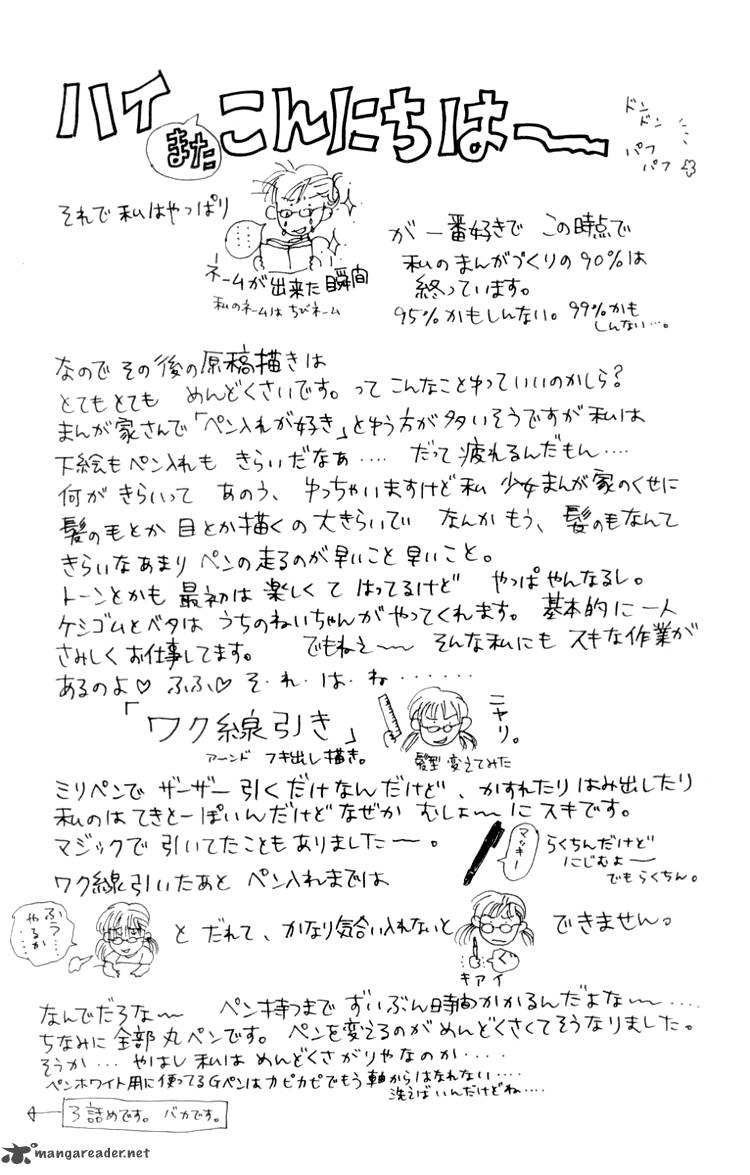 ハイ また こんにちは〜
ドンドン
パフパフ
それで私はやっぱり
ネームが出来た瞬間
私のネームは ちびネーム
が一番好きで この時点で
私のまんがづくりの90%は
終っています。
95%かもしんない。99%かも
しんない…。
なので その後の原稿描きは
とてもとても めんどくさいです。って こんなことゆっていいのかしら?
まんが家さんで「ペン入れが好き」とゆう方が多いそうですが私は
下絵もペン入れも きらいだなあ…. だって疲れるんだもん….
何が きらいって あのう、ゆっちゃいますけど私 少女まんが家のくせに
髪の毛とか 目とか描くの 大きらいで なんか もう、髪の毛なんて
きらいなあまり ペンの走るのが早いこと早いこと。
トーンとかも 最初は楽しくて はってるけど やっぱ やんなるし。
ケシゴムとベタは うちのねいちゃんがやってくれます。 基本的に一人
さみしく お仕事してます。 でもねえ〜 そんな私にも スキな作業が
あるのよ♡ ふふ♡ そ・れ・は・ね・・・・・・
「ワク線引き」
アーンド フキ出し描き。
ニヤリ。
髪型 変えてみた
ミリペンで ザーザー 引くだけなんだけど、かすれたり はみ出したり
私のは てきとーぽいんだけど なぜか むしょ〜に スキです。
マジックで 引いてたことも ありました〜。
マッキー
らくちんだけど
にじむよ〜
でも らくちん。
ワク線引いたあと ペン入れまでは
ふう…
やるか…
と だれて、かなり気合い入れないと
キアイ
できません。
なんでだろな〜 ペン持つまで ずいぶん時間かかるんだよな〜….
ちなみに 全部 丸ペンです。 ペンを変えるのが めんどくさくて そうなりました。
そうか… やはし 私は めんどくさがりやなのか….
ペンホワイト用に使ってるGペンは カピカピで もう 軸からはなれない….
洗えばいんだけどね….
3詰めです。 バカです。
mangareader.net